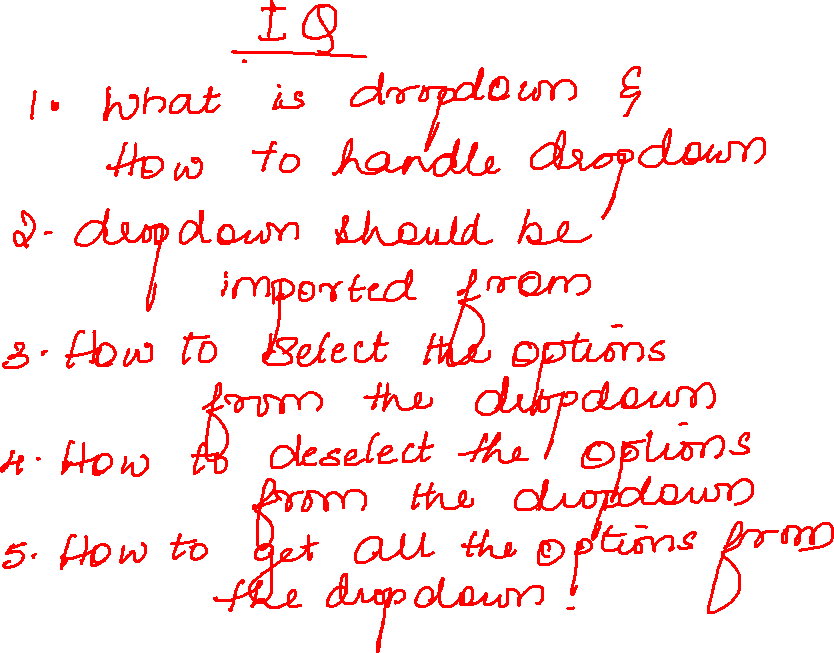 IQ
1. What is dropdown &
How to handle dropdown
2- dropdown should be
imported from
3. How to select the options
from the dropdown
4. How to deselect the options
from the dropdown
5. How to get all the options from
the dropdown!